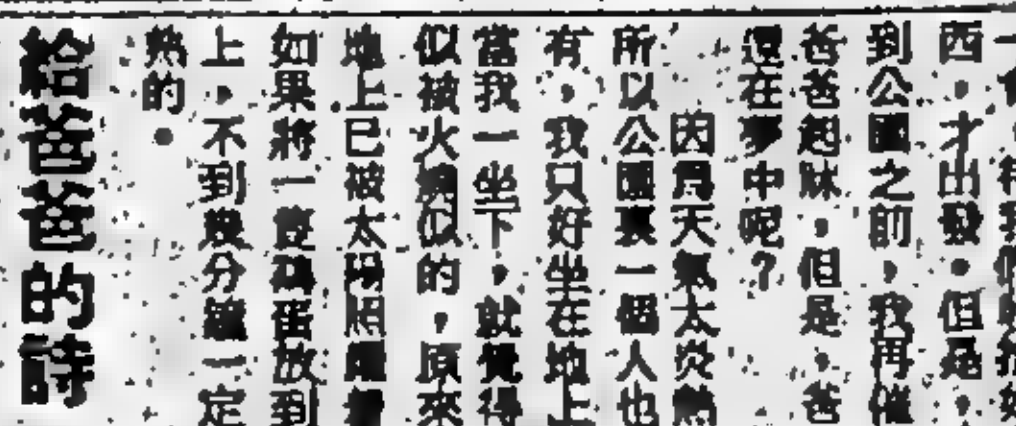 西，才出發。但是，
到公園之前，我再催
爸爸起牀，但是，爸
還在夢中呢？
因爲天氣太炎熱
所以公園裏一個人也
有，我只好坐在地上
當我一坐下，就覺得
似被火燒似的，原來
地上已被太陽照
如果將一隻雞蛋放到
上，不到幾分鐘一定
熟的。
給爸爸的詩